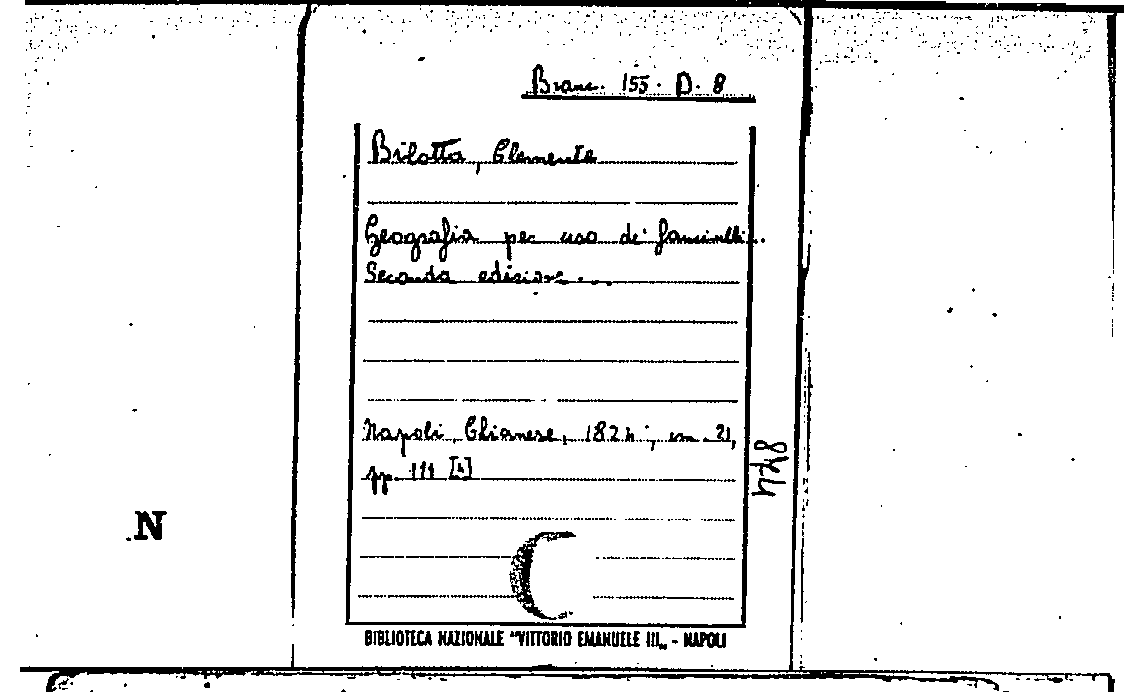 Branc. 155. D. 8
Bilotta, Clemente
Geografia per uso de' fanciulli.
Seconda edizione...
Napoli, Chianese, 1824; cm. 21,
pp. 111 [1]
824
N
BIBLIOTECA NAZIONALE "VITTORIO EMANUELE III„ - NAPOLI